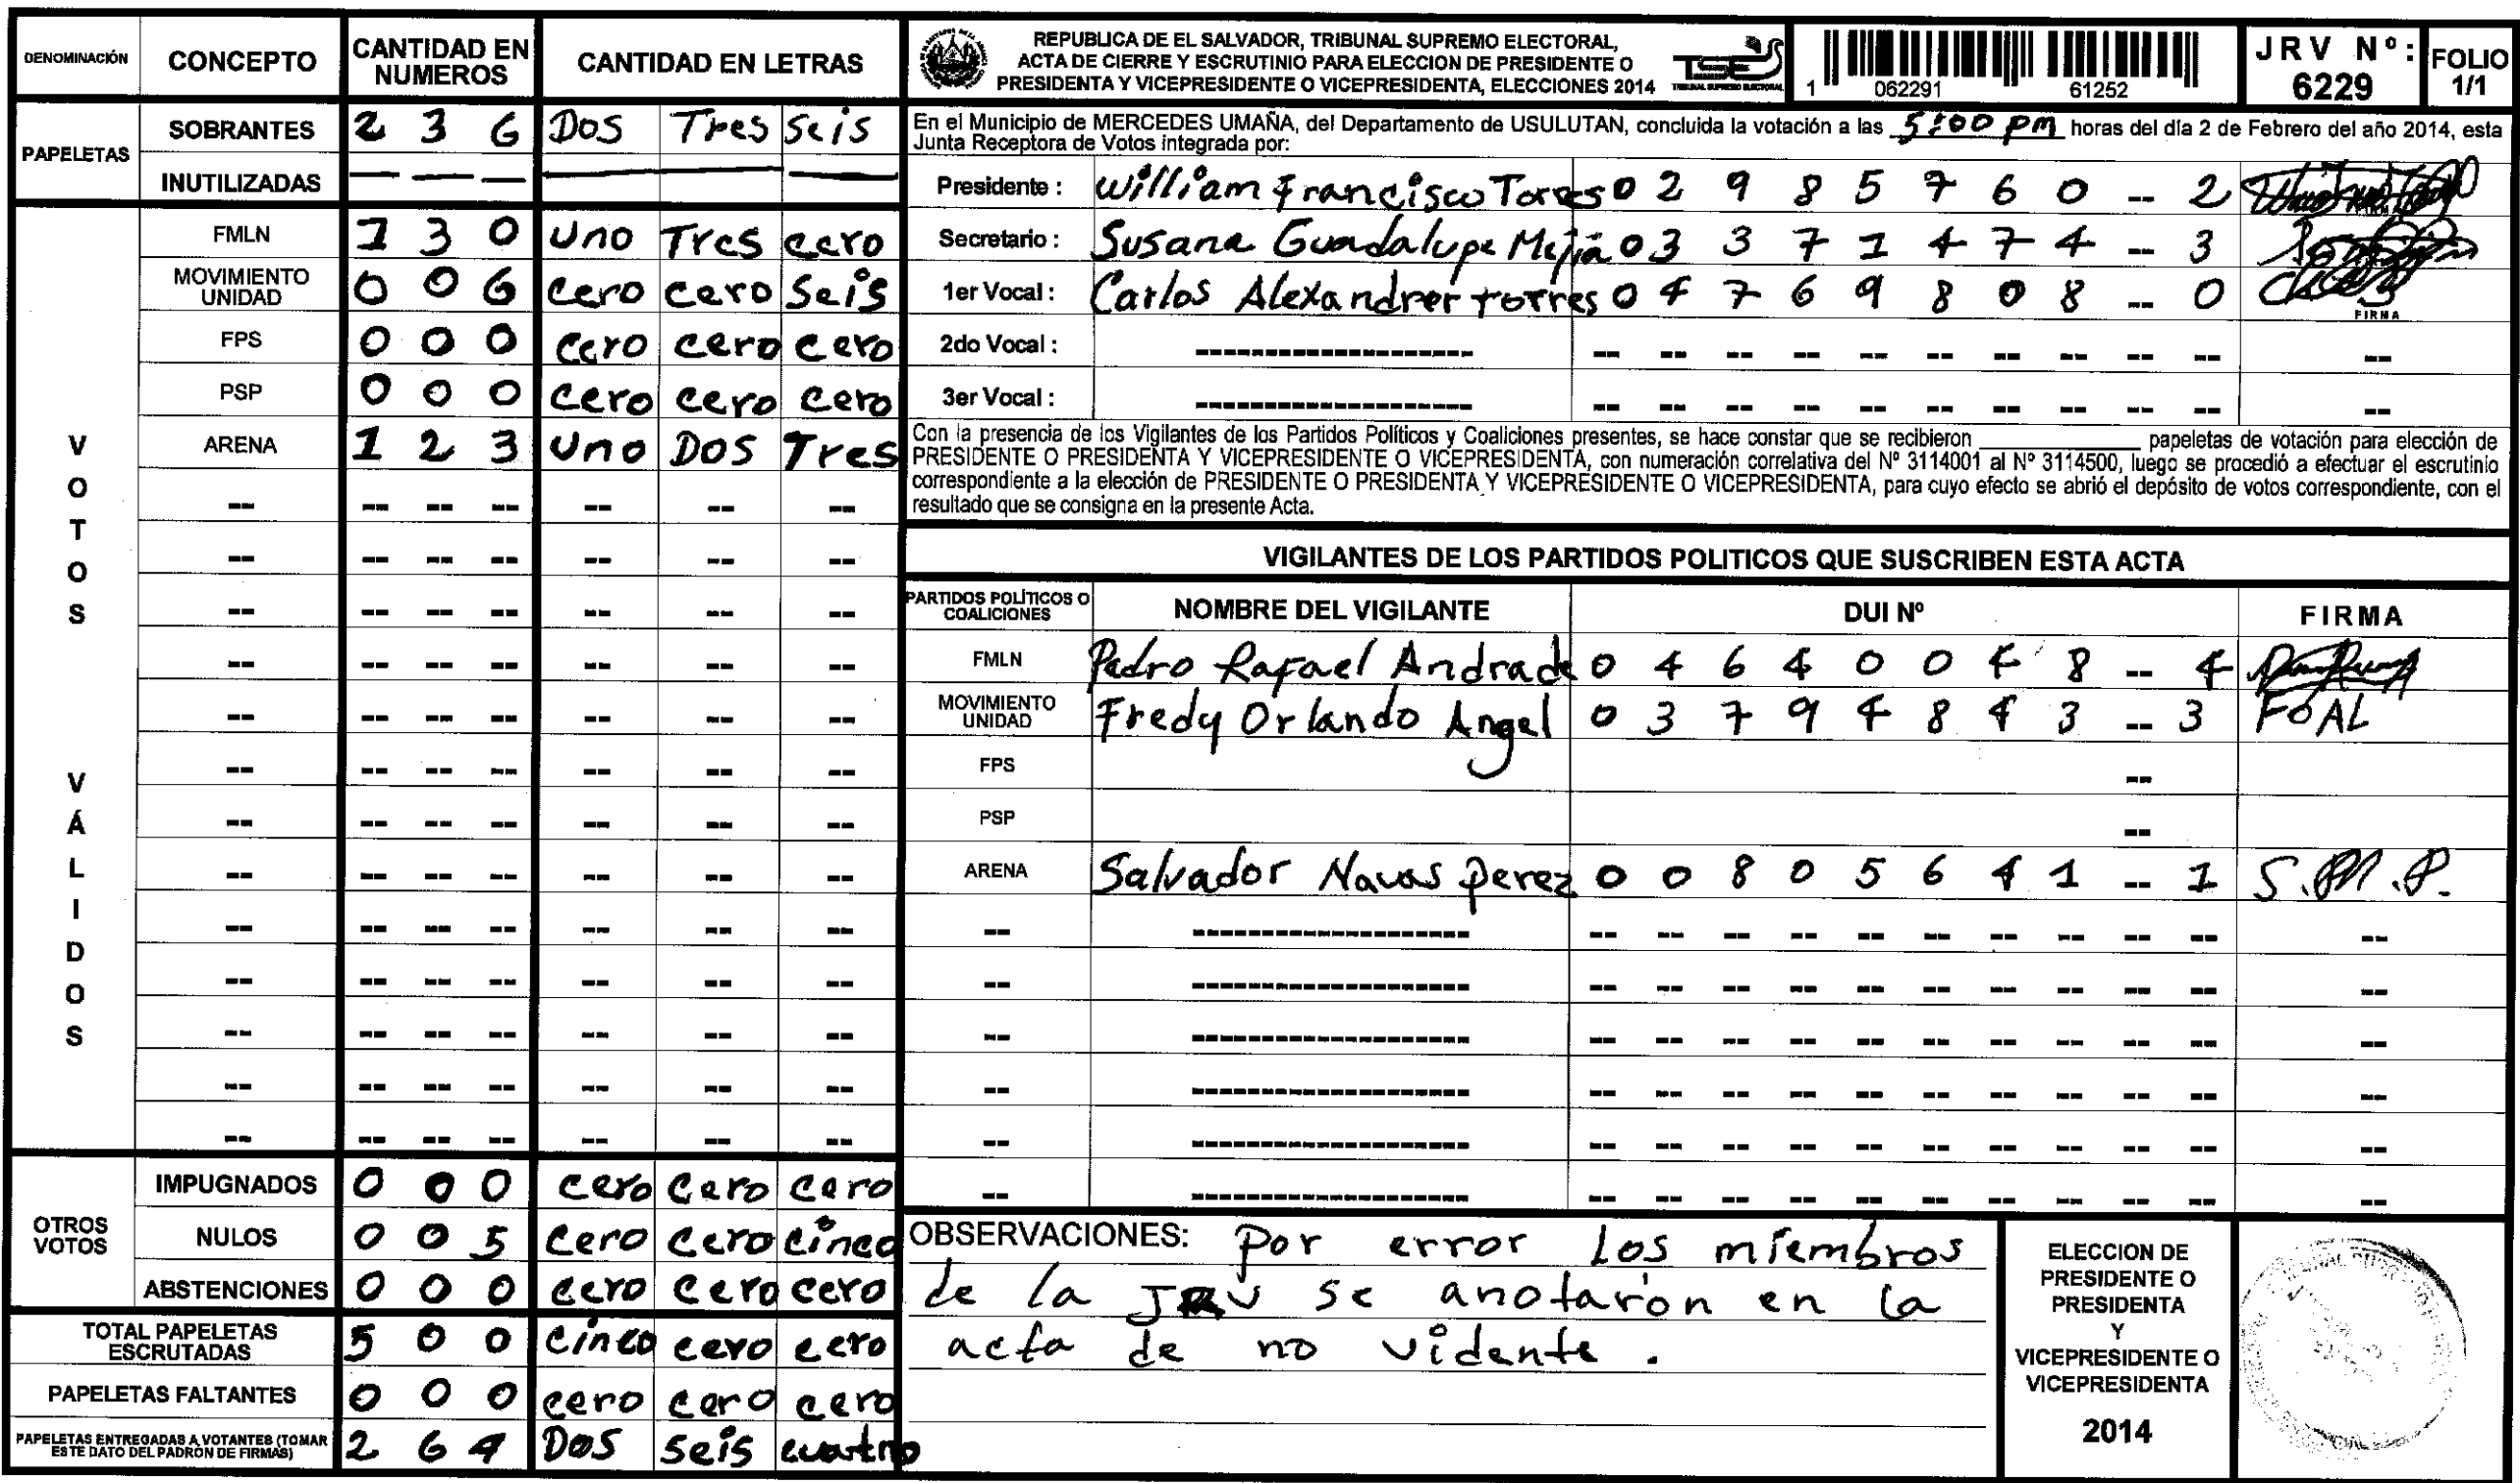 DENOMINACIÓN CONCEPTO CANTIDAD EN NUMEROS CANTIDAD EN LETRAS
PAPELETAS
SOBRANTES 2 3 6 DOS Tres Seis
INUTILIZADAS — — — — — —
VOTOS VÁLIDOS
FMLN 1 3 0 Uno Tres cero
MOVIMIENTO UNIDAD 0 0 6 cero cero Seis
FPS 0 0 0 cero cero cero
PSP 0 0 0 cero cero cero
ARENA 1 2 3 Uno DOS Tres
-- -- -- -- -- -- --
-- -- -- -- -- -- --
-- -- -- -- -- -- --
-- -- -- -- -- -- --
-- -- -- -- -- -- --
-- -- -- -- -- -- --
-- -- -- -- -- -- --
-- -- -- -- -- -- --
-- -- -- -- -- -- --
-- -- -- -- -- -- --
-- -- -- -- -- -- --
-- -- -- -- -- -- --
-- -- -- -- -- -- --
OTROS VOTOS
IMPUGNADOS 0 0 0 cero cero cero
NULOS 0 0 5 cero cero cinco
ABSTENCIONES 0 0 0 cero cero cero
TOTAL PAPELETAS ESCRUTADAS 5 0 0 cinco cero cero
PAPELETAS FALTANTES 0 0 0 cero cero cero
PAPELETAS ENTREGADAS A VOTANTES (TOMAR ESTE DATO DEL PADRÓN DE FIRMAS) 2 6 4 DOS seis cuatro
REPUBLICA DE EL SALVADOR, TRIBUNAL SUPREMO ELECTORAL,
ACTA DE CIERRE Y ESCRUTINIO PARA ELECCION DE PRESIDENTE O
PRESIDENTA Y VICEPRESIDENTE O VICEPRESIDENTA, ELECCIONES 2014
TSE
TRIBUNAL SUPREMO ELECTORAL
1 062291 61252
JRV Nº: 6229
FOLIO 1/1
En el Municipio de MERCEDES UMAÑA, del Departamento de USULUTAN, concluida la votación a las 5:00 pm horas del día 2 de Febrero del año 2014, esta
Junta Receptora de Votos integrada por:
Presidente : William Francisco Torres 0 2 9 8 5 7 6 0 -- 2
Secretario : Susana Guadalupe Mejia 0 3 3 7 1 4 7 4 -- 3
1er Vocal : Carlos Alexandrer torres 0 4 7 6 9 8 0 8 -- 0
FIRMA
2do Vocal : -------------------- -- -- -- -- -- -- -- -- -- -- --
3er Vocal : -------------------- -- -- -- -- -- -- -- -- -- -- --
Con la presencia de los Vigilantes de los Partidos Políticos y Coaliciones presentes, se hace constar que se recibieron ________ papeletas de votación para elección de
PRESIDENTE O PRESIDENTA Y VICEPRESIDENTE O VICEPRESIDENTA, con numeración correlativa del Nº 3114001 al Nº 3114500, luego se procedió a efectuar el escrutinio
correspondiente a la elección de PRESIDENTE O PRESIDENTA Y VICEPRESIDENTE O VICEPRESIDENTA, para cuyo efecto se abrió el depósito de votos correspondiente, con el
resultado que se consigna en la presente Acta.
VIGILANTES DE LOS PARTIDOS POLITICOS QUE SUSCRIBEN ESTA ACTA
PARTIDOS POLÍTICOS O COALICIONES NOMBRE DEL VIGILANTE DUI Nº FIRMA
FMLN Pedro Rafael Andrade 0 4 6 4 0 0 4 8 -- 4
MOVIMIENTO UNIDAD Fredy Orlando Angel 0 3 7 9 4 8 4 3 -- 3 FOAL
FPS --
PSP --
ARENA Salvador Navas Perez 0 0 8 0 5 6 4 1 -- 1 S.N.P.
-- -------------------- -- -- -- -- -- -- -- -- -- -- --
-- -------------------- -- -- -- -- -- -- -- -- -- -- --
-- -------------------- -- -- -- -- -- -- -- -- -- -- --
-- -------------------- -- -- -- -- -- -- -- -- -- -- --
-- -------------------- -- -- -- -- -- -- -- -- -- -- --
-- -------------------- -- -- -- -- -- -- -- -- -- -- --
OBSERVACIONES: Por error Los miembros
de la JRV se anotarón en la
acta de no vidente.
ELECCION DE
PRESIDENTE O
PRESIDENTA
Y
VICEPRESIDENTE O
VICEPRESIDENTA
2014